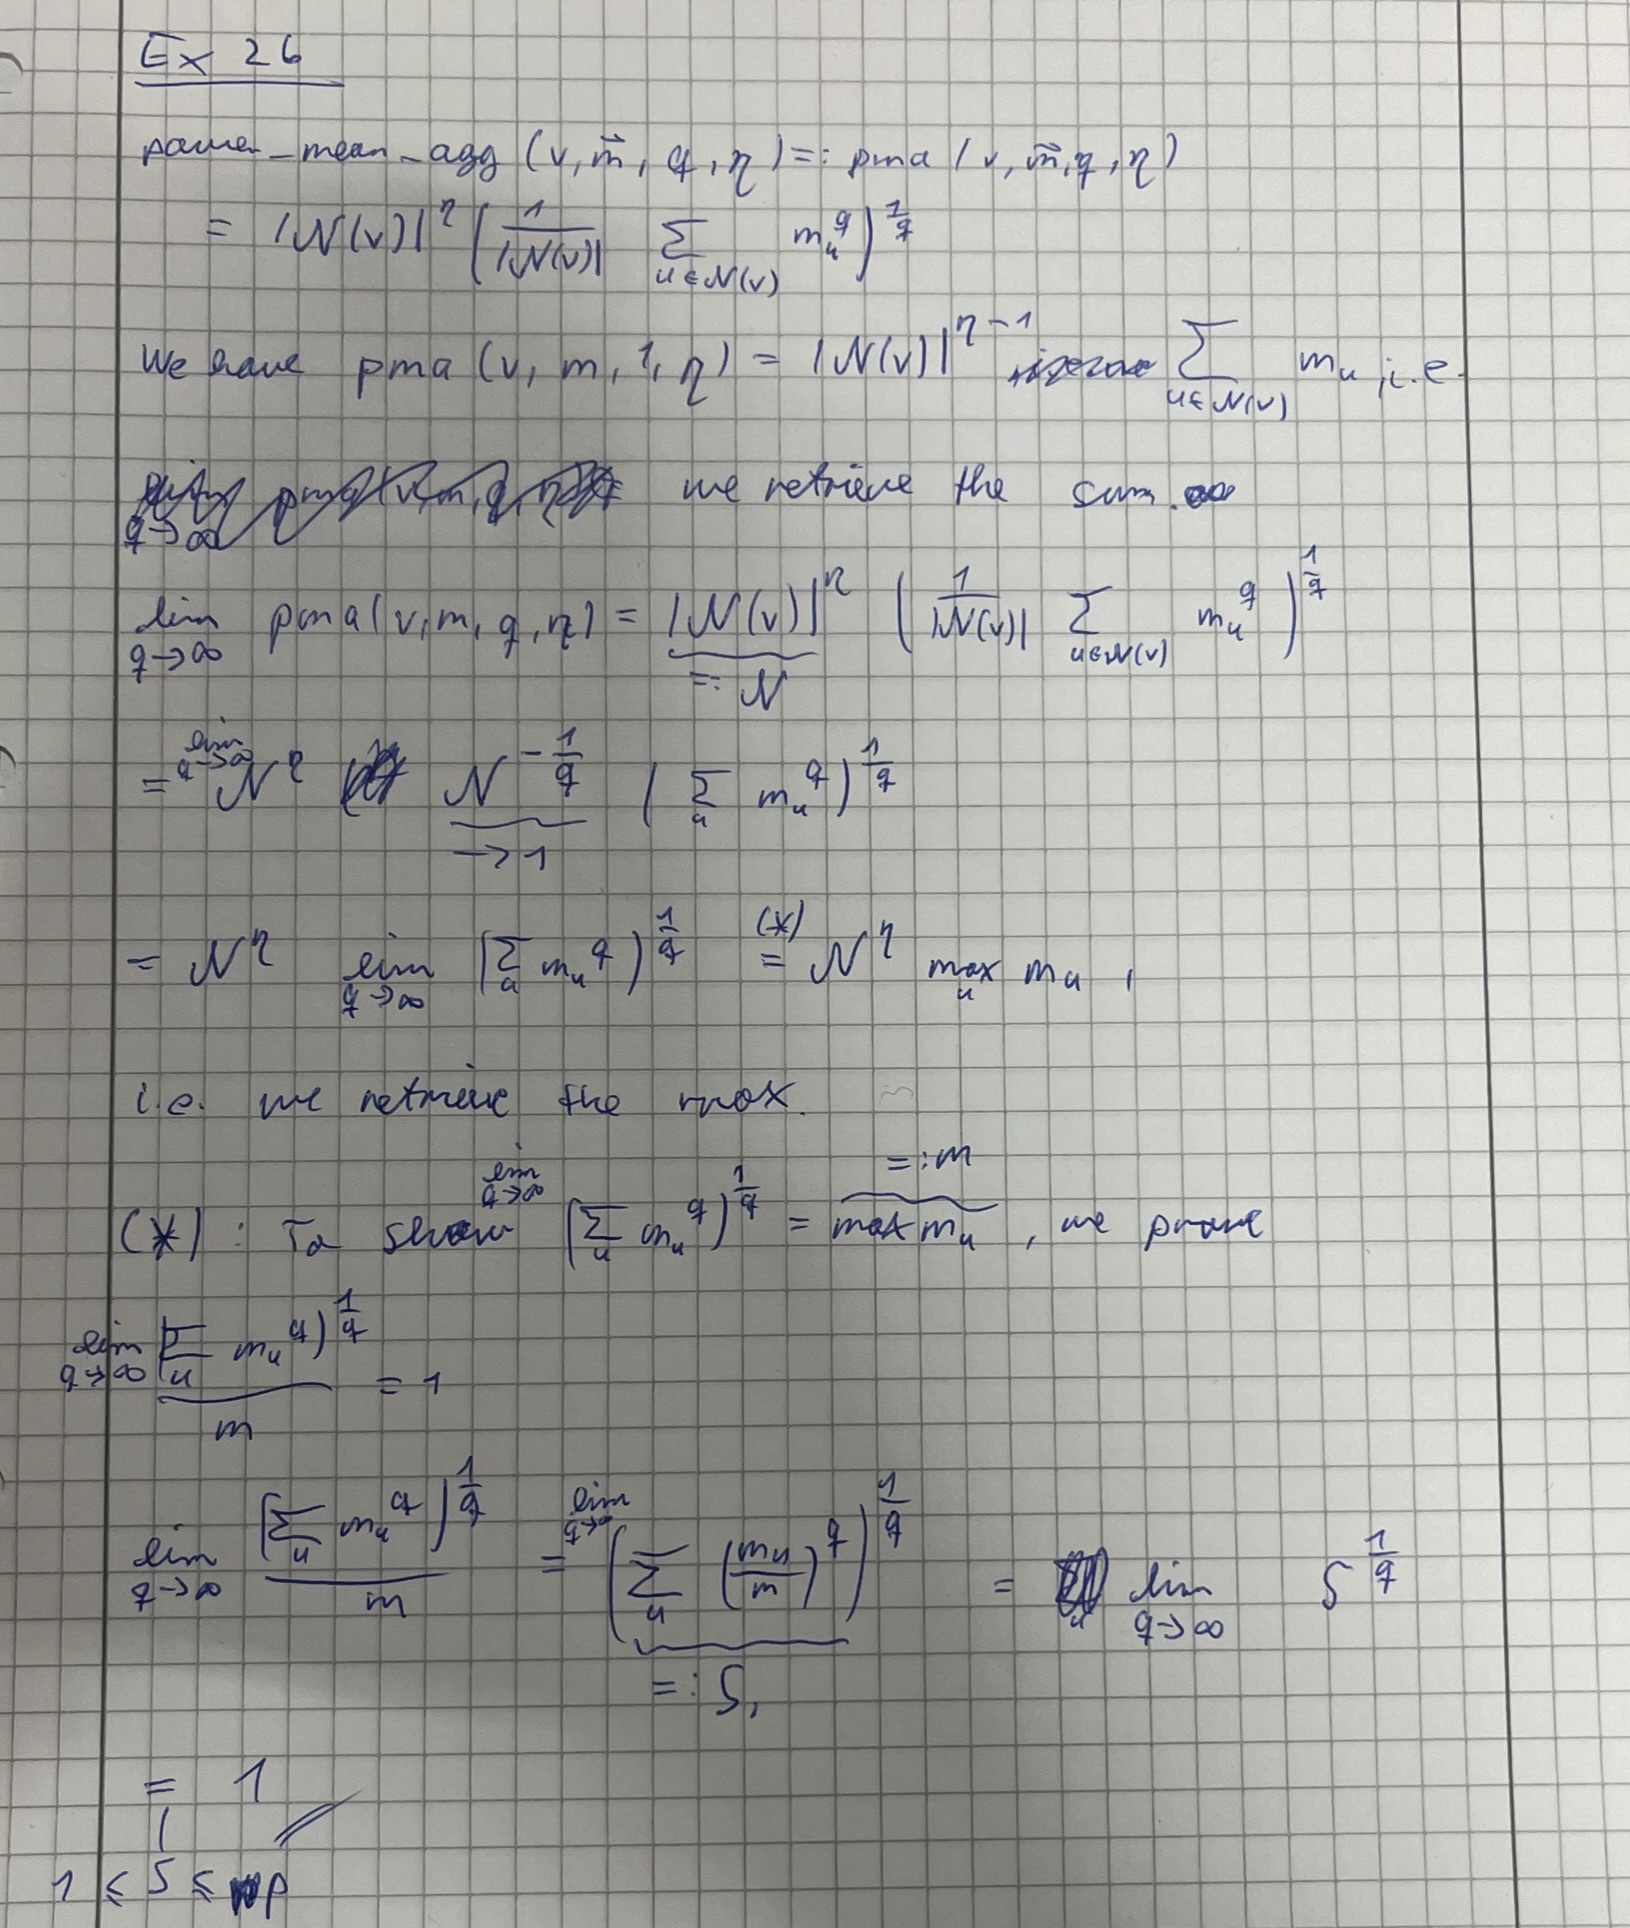 Ex 26
power_mean_agg (v, m⃗, q, η) =: pma (v, m⃗, q, η)
= |N(v)|^η ( 1/|N(v)| ∑_{u∈N(v)} m_u^q )^{1/q}
We have pma (v, m, 1, η) = |N(v)|^{η-1} ∑_{u∈N(v)} m_u, i.e.
we retrieve the sum.
lim_{q→∞} pma(v, m, q, η) = |N(v)|^η ( 1/|N(v)| ∑_{u∈N(v)} m_u^q )^{1/q}
=: N
= lim_{q→∞} N^η N^{-1/q} ( ∑_u m_u^q )^{1/q}
→ 1
= N^η lim_{q→∞} ( ∑_u m_u^q )^{1/q} (*)= N^η max_u m_u ,
i.e. we retrieve the max.
=: m
(*) : To show lim_{q→∞} ( ∑_u m_u^q )^{1/q} = max m_u , we prove
lim_{q→∞} ( ∑_u m_u^q )^{1/q} / m = 1
lim_{q→∞} ( ∑_u m_u^q )^{1/q} / m = lim_{q→∞} ( ∑_u (m_u/m)^q )^{1/q} = lim_{q→∞} S^{1/q}
=: S,
= 1
1 ≤ S ≤ p